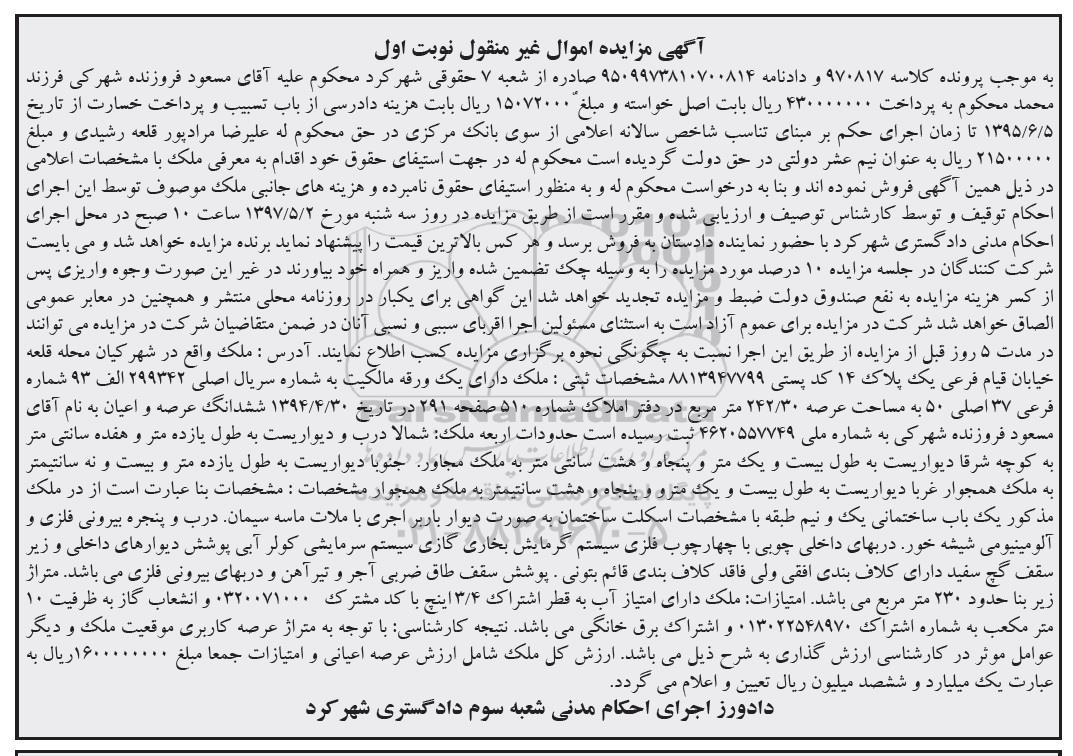 آگهی مزایده اموال غیر منقول نوبت اول
به موجب پرونده کلاسه ۹۷۰۸۱۷ و دادنامه ۹۵۰۹۹۷۳۸۱۰۷۰۰۸۱۴ صادره از شعبه ۷ حقوقی شهرکرد محکوم علیه آقای مسعود فروزنده شهرکی فرزند
محمد محکوم به پرداخت ۴۳۰۰۰۰۰۰۰ ریال بابت اصل خواسته و مبلغ ۱۵۰۷۲۰۰۰ ریال بابت هزینه دادرسی از باب تسبیب و پرداخت خسارت از تاریخ
۱۳۹۵/۶/۵ تا زمان اجرای حکم بر مبنای تناسب شاخص سالانه اعلامی از سوی بانک مرکزی در حق محکوم له علیرضا مرادپور قلعه رشیدی و مبلغ
۲۱۵۰۰۰۰۰ ریال به عنوان نیم عشر دولتی در حق دولت گردیده است محکوم له در جهت استیفای حقوق خود اقدام به معرفی ملک با مشخصات اعلامی
در ذیل همین آگهی فروش نموده اند و بنا به درخواست محکوم له و به منظور استیفای حقوق نامبرده و هزینه های جانبی ملک موصوف توسط این اجرای
احکام توقیف و توسط کارشناس توصیف و ارزیابی شده و مقرر است از طریق مزایده در روز سه شنبه مورخ ۱۳۹۷/۵/۲ ساعت ۱۰ صبح در محل اجرای
احکام مدنی دادگستری شهرکرد با حضور نماینده دادستان به فروش برسد و هر کس بالاترین قیمت را پیشنهاد نماید برنده مزایده خواهد شد و می بایست
شرکت کنندگان در جلسه مزایده ۱۰ درصد مورد مزایده را به وسیله چک تضمین شده واریز و همراه خود بیاورند در غیر این صورت وجوه واریزی پس
از کسر هزینه مزایده به نفع صندوق دولت ضبط و مزایده تجدید خواهد شد این گواهی برای یکبار در روزنامه محلی منتشر و همچنین در معابر عمومی
الصاق خواهد شد شرکت در مزایده برای عموم آزاد است به استثنای مسئولین اجرا اقربای سببی و نسبی آنان در ضمن متقاضیان شرکت در مزایده می توانند
در مدت ۵ روز قبل از مزایده از طریق این اجرا نسبت به چگونگی نحوه برگزاری مزایده کسب اطلاع نمایند. آدرس : ملک واقع در شهرکیان محله قلعه
خیابان قیام فرعی یک پلاک ۱۴ کد پستی ۸۸۱۳۹۴۷۷۹۹ مشخصات ثبتی : ملک دارای یک ورقه مالکیت به شماره سریال اصلی ۲۹۹۳۴۲ الف ۹۳ شماره
فرعی ۳۷ اصلی ۵۰ به مساحت عرصه ۲۴۲/۳۰ متر مربع در دفتر املاک شماره ۵۱۰ صفحه ۲۹۱ در تاریخ ۱۳۹۴/۴/۳۰ ششدانگ عرصه و اعیان به نام آقای
مسعود فروزنده شهرکی به شماره ملی ۴۶۲۰۵۵۷۷۴۹ ثبت رسیده است حدودات اربعه ملک: شمالا درب و دیواریست به طول یازده متر و هفده سانتی متر
به کوچه شرقا دیواریست به طول بیست و یک متر و پنجاه و هشت سانتی متر به ملک مجاور. جنوبا دیواریست به طول یازده متر و بیست و نه سانتیمتر
به ملک همجوار غربا دیواریست به طول بیست و یک مترو و پنجاه و هشت سانتیمتر به ملک همجوار مشخصات : مشخصات بنا عبارت است از در ملک
مذکور یک باب ساختمانی یک و نیم طبقه با مشخصات اسکلت ساختمان به صورت دیوار باربر اجری با ملات ماسه سیمان. درب و پنجره بیرونی فلزی و
آلومینیومی شیشه خور. دربهای داخلی چوبی با چهارچوب فلزی سیستم گرمایش بخاری گازی سیستم سرمایشی کولر آبی پوشش دیوارهای داخلی و زیر
سقف گچ سفید دارای کلاف بندی افقی ولی فاقد کلاف بندی قائم بتونی . پوشش سقف طاق ضربی آجر و تیر آهن و دربهای بیرونی فلزی می باشد. متراژ
زیر بنا حدود ۲۳۰ متر مربع می باشد. امتیازات: ملک دارای امتیاز آب به قطر اشتراک ۳/۴ اینچ با کد مشترک ۰۳۲۰۰۷۱۰۰۰ و انشعاب گاز به ظرفیت ۱۰
متر مکعب به شماره اشتراک ۰۱۳۰۲۲۵۴۸۹۷۰ و اشتراک برق خانگی می باشد. نتیجه کارشناسی: با توجه به متراژ عرصه کاربری موقعیت ملک و دیگر
عوامل موثر در کارشناسی ارزش گذاری به شرح ذیل می باشد. ارزش کل ملک شامل ارزش عرصه اعیانی و امتیازات جمعا مبلغ ۱۶۰۰۰۰۰۰۰۰ریال به
عبارت یک میلیارد و ششصد میلیون ریال تعیین و اعلام می گردد.
دادورز اجرای احکام مدنی شعبه سوم دادگستری شهرکرد
ParsNamadData
پایگاه اطلاع رسانی مناقصه و مزایده
۰۲۱-۸۸۳۴۹۶۷۰-۵